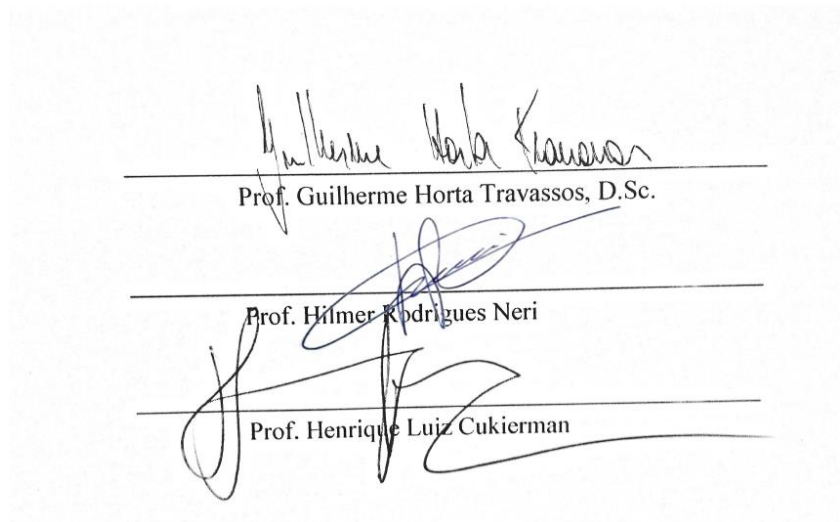 Guilherme Horta Travassos
Prof. Guilherme Horta Travassos, D.Sc.
Prof. Hilmer Rodrigues Neri
Prof. Henrique Luiz Cukierman